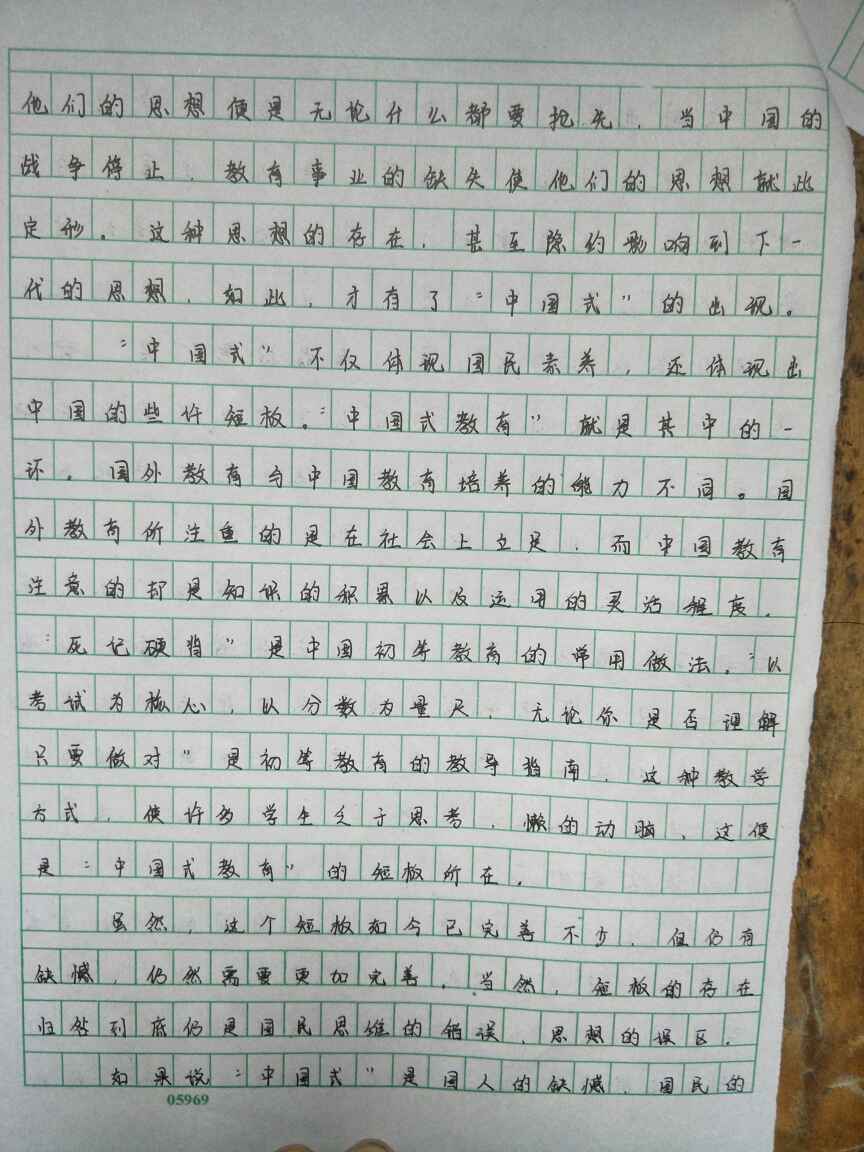 他们的思想便是无论什么都要抢先，当中国的
战争停止，教育事业的缺失使他们的思想就此
定形。这种思想的存在，甚至隐约影响到下一
代的思想，如此，才有了“中国式”的出现。
“中国式”不仅体现国民素养，还体现出
中国的些许短板。“中国式教育”就是其中的一
环。国外教育与中国教育培养的能力不同。国
外教育所注重的是在社会上立足，而中国教育
注意的却是知识的积累以及运用的灵活程度，
“死记硬背”是中国初等教育的常用做法。“以
考试为核心，以分数为量尺，无论你是否理解
只要做对”是初等教育的教导指南，这种教学
方式，使许多学生乏于思考，懒的动脑，这便
是“中国式教育”的短板所在。
虽然，这个短板如今已完善不少，但仍有
缺憾，仍然需要更加完善。当然，短板的存在
归咎到底仍是国民思维的错误，思想的误区。
如果说“中国式”是国人的缺憾，国民的
05969